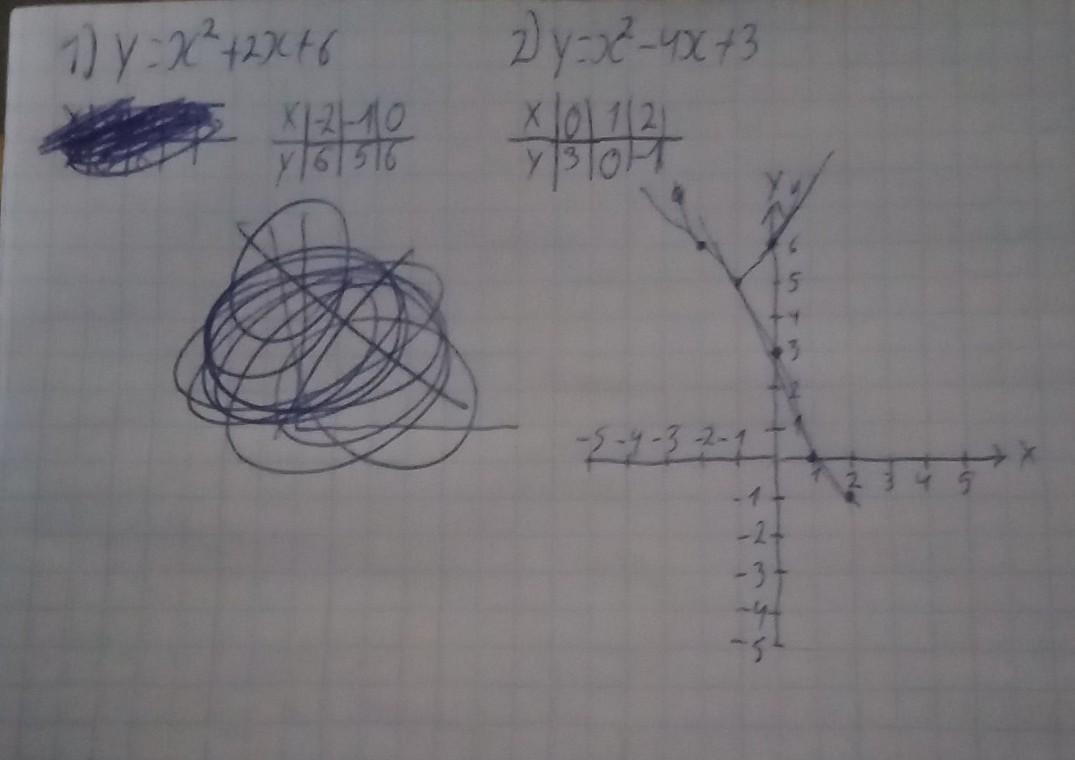 1) y=x²+2x+6 2) y=x²-4x+3
X -2 -1 0 X 0 1 2
Y 6 5 6 Y 3 0 -1
Y
6
5
4
3
2
1
-5 -4 -3 -2 -1 X
1 2 3 4 5
-1
-2
-3
-4
-5